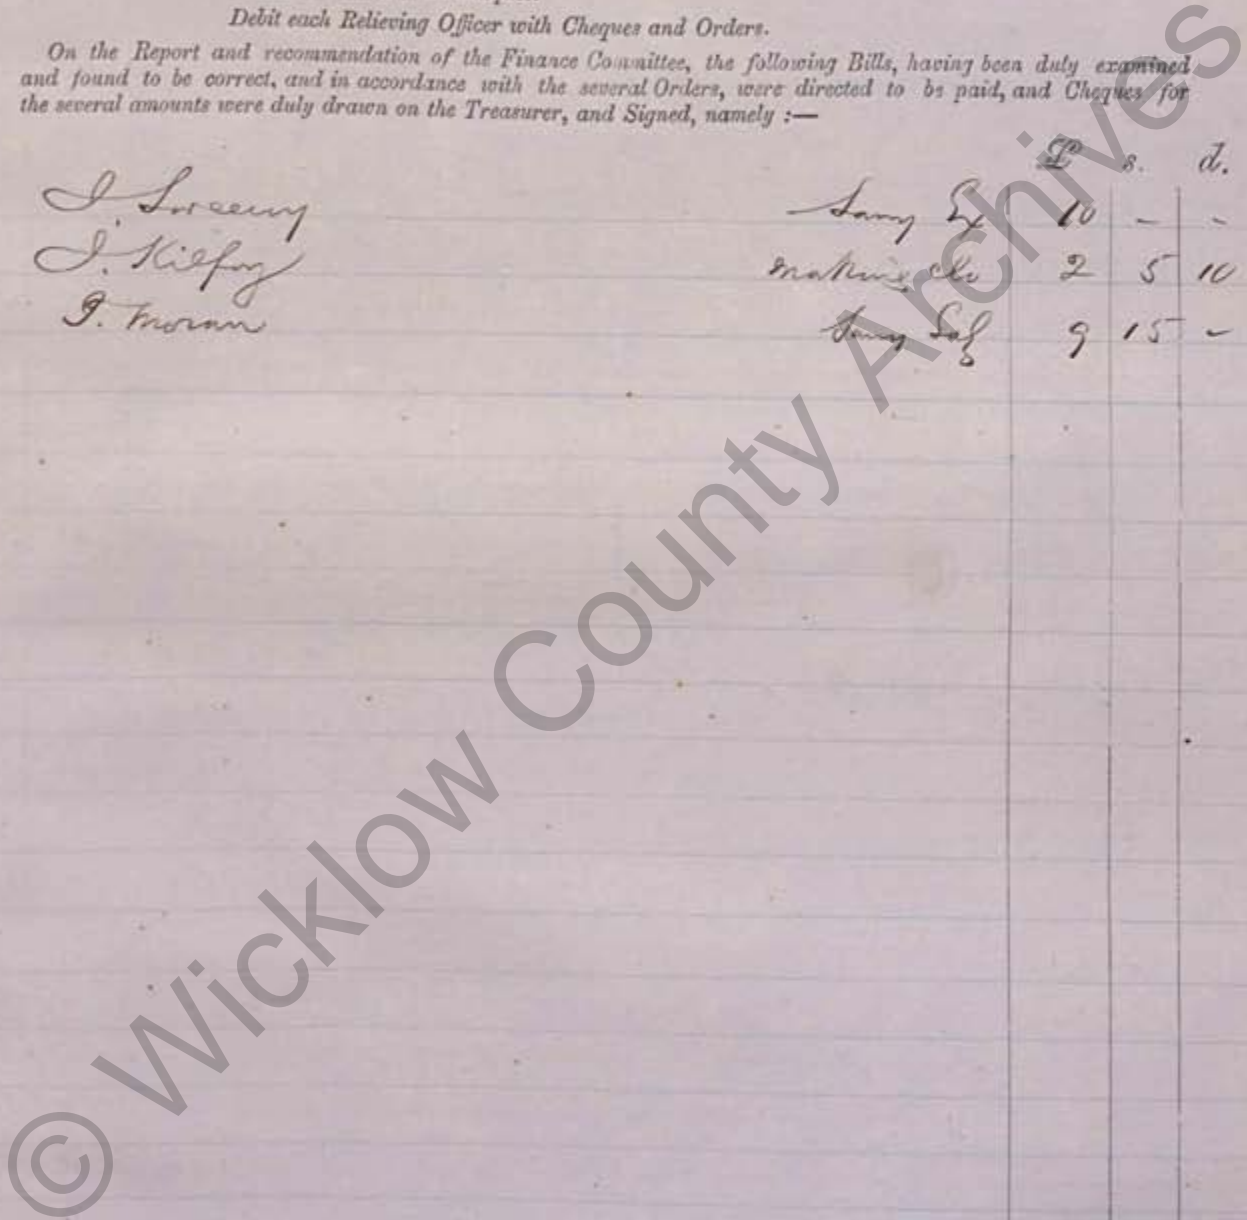 Debit each Relieving Officer with Cheques and Orders.
On the Report and recommendation of the Finance Committee, the following Bills, having been duly examined
and found to be correct, and in accordance with the several Orders, were directed to be paid, and Cheques for
the several amounts were duly drawn on the Treasurer, and Signed, namely :—
£ s. d.
Sweeny Sany Ex 10 - -
Kilfoy making 2 5 10
Moran Sany Sal 9 15 -
© Wicklow County Archives